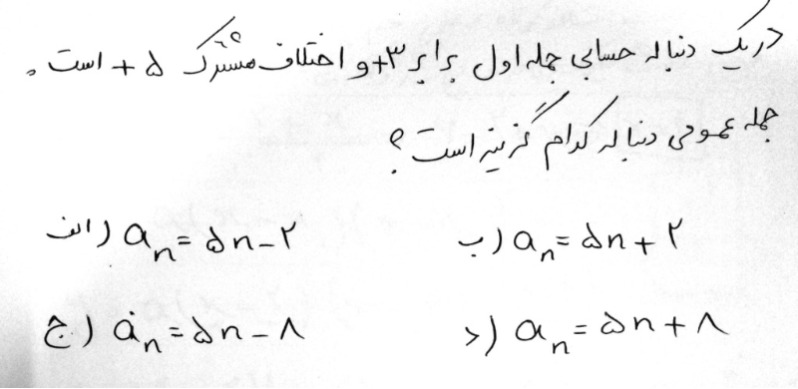 در یک دنباله حسابی جمله اول برابر +۳ و اختلاف مشترک +۵ است.
جمله عمومی دنباله کدام گزینه است؟
الف) aₙ = ۵n − ۲
ب) aₙ = ۵n + ۲
ج) aₙ = ۵n − ۸
د) aₙ = ۵n + ۸